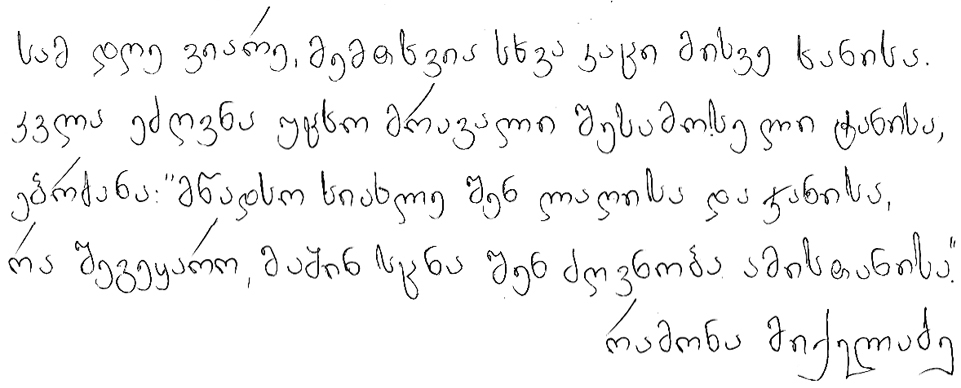 სამ დღე ვიარე, მემთხვია სხვა კაცი მისვე ხანისა.
კვლა ეძღვნა უცხო მრავალი შესამოსელი ტანისა,
ებრძანა: "მწადსო სიახლე შენ ლაღისა და ჯანისა,
რა შევეყარო, მაშინ სცნა შენ ძღვნობა ამისთანისა."
რამონა მიქელაძე